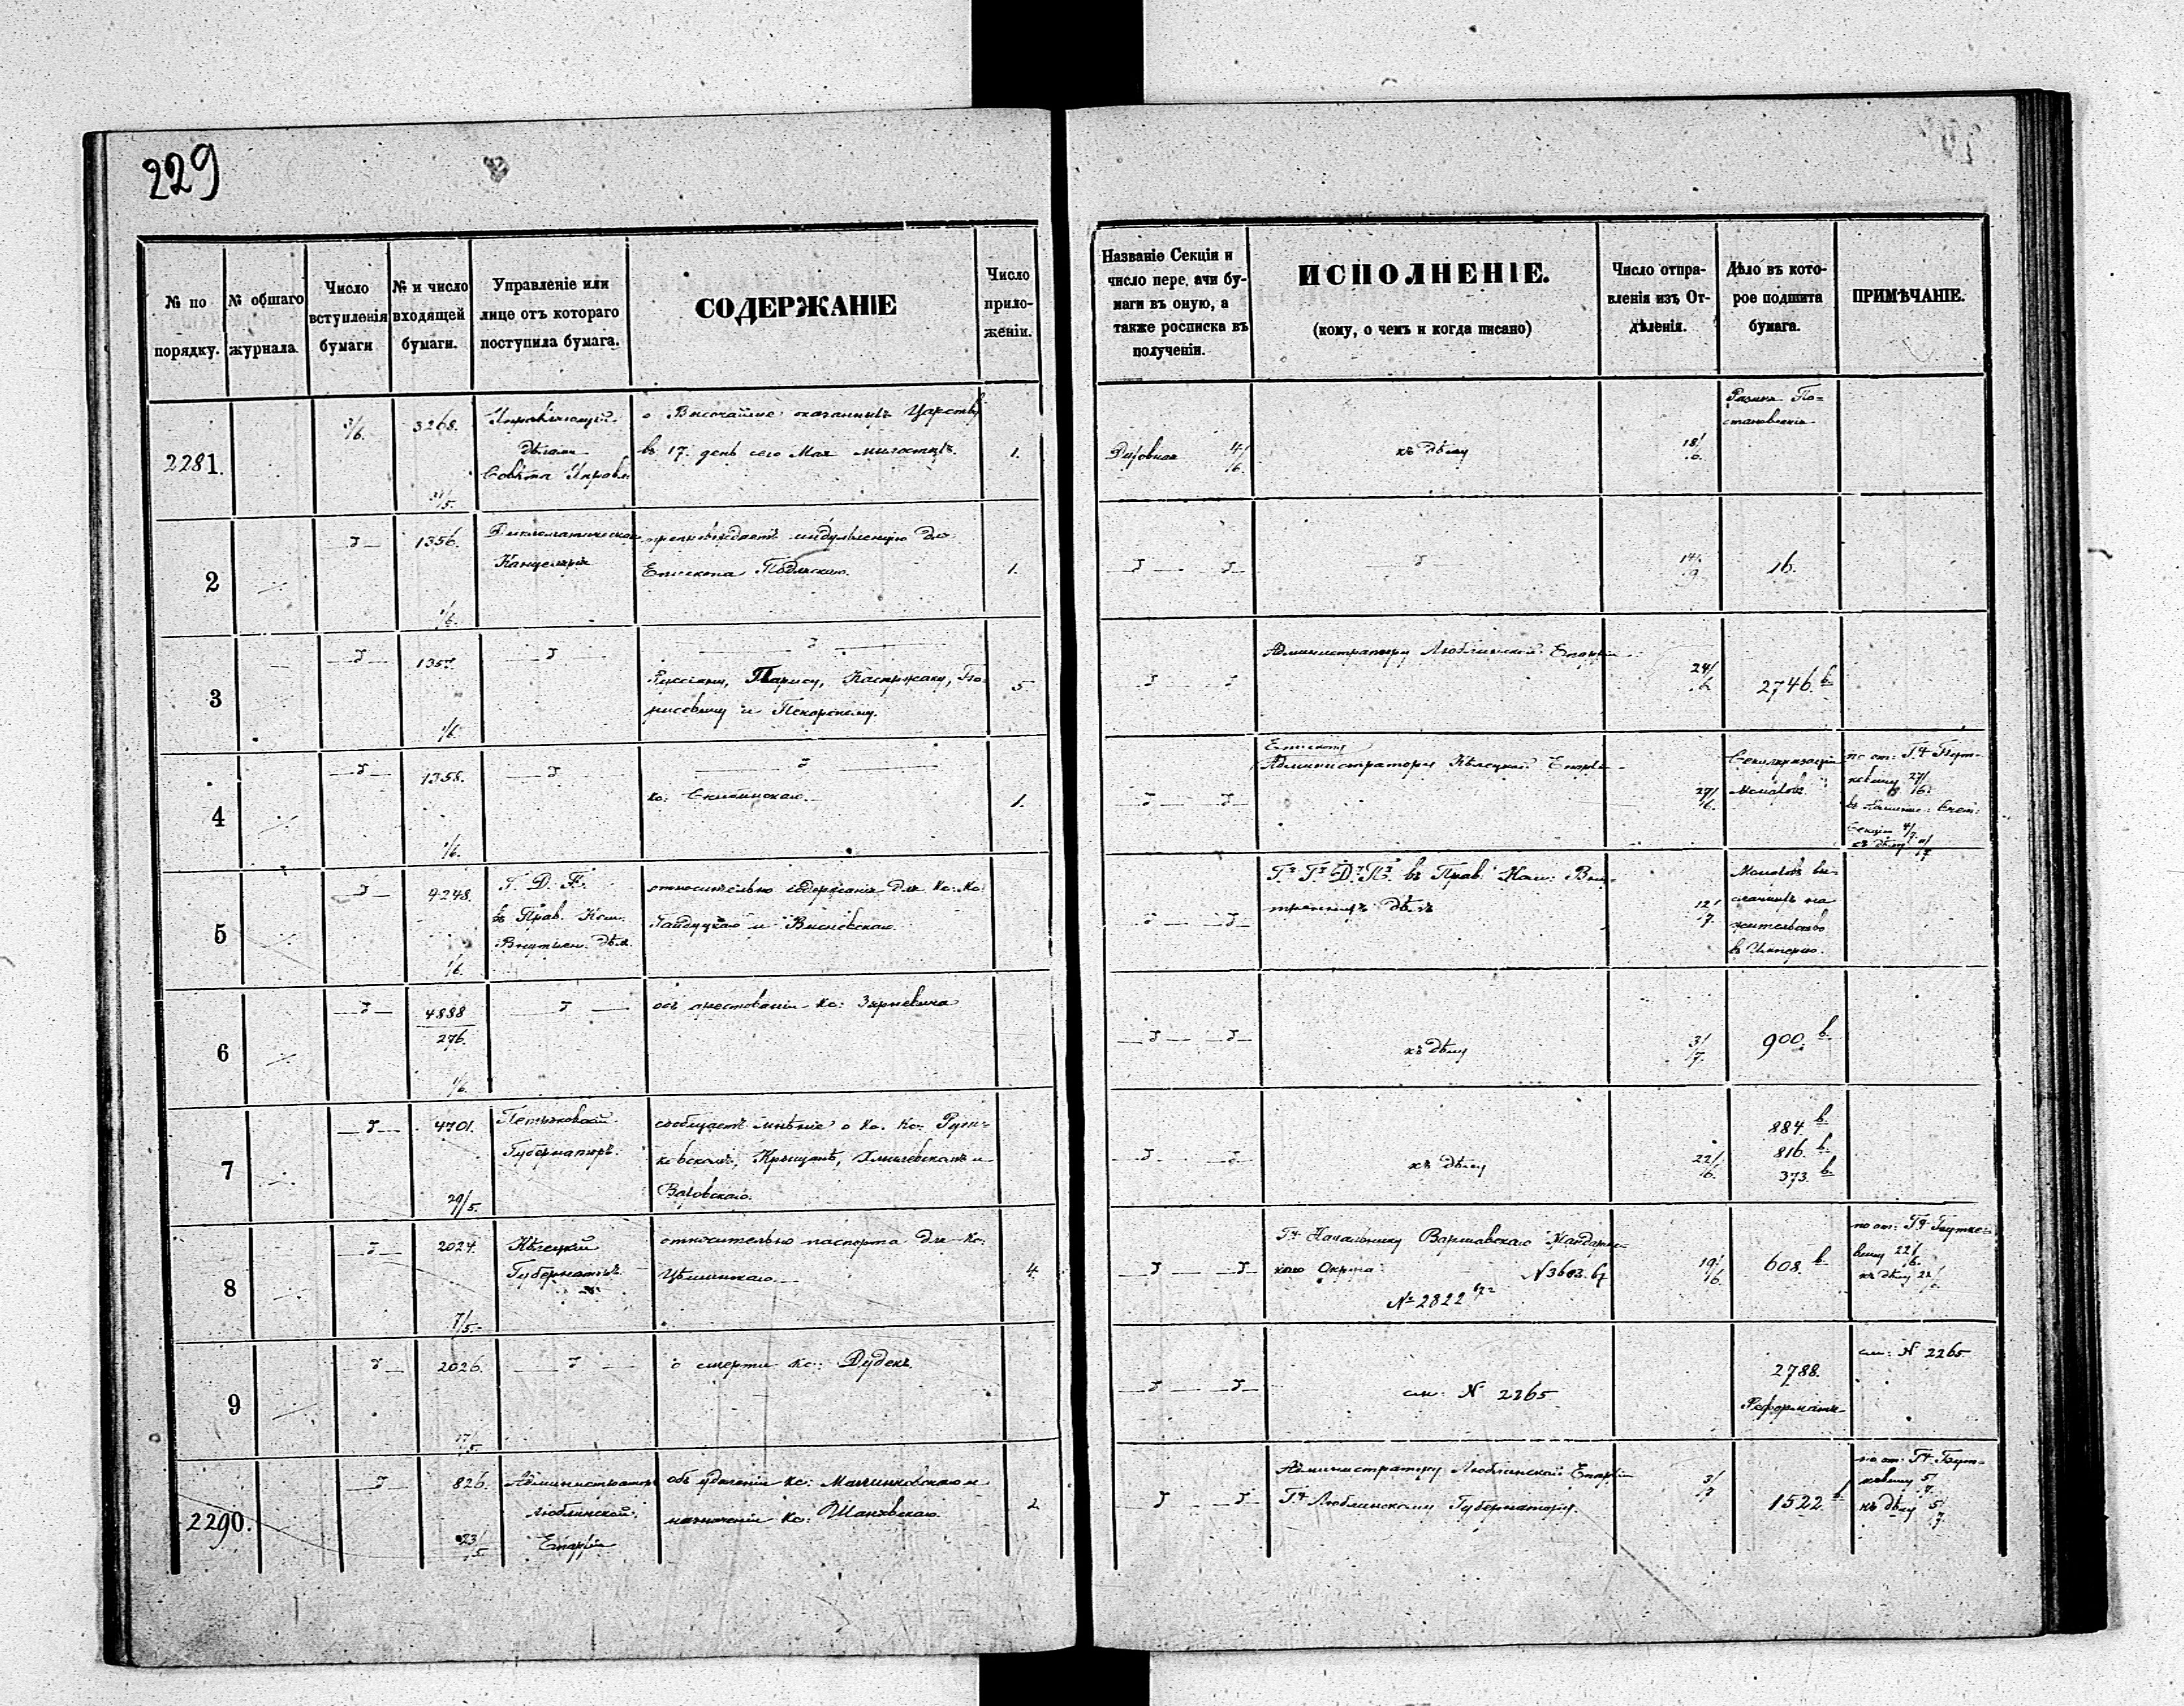 229
№ по порядку.
№ общаго журнала.
Число вступленія бумаги
№ и число входящей бумаги.
Управленіе или лице отъ котораго поступила бумага.
СОДЕРЖАНІЕ
Число приложеніи.
Названіе Секціи и число пере. ачи бумаги въ оную, а также росписка въ полученіи.
ИСПОЛНЕНІЕ.
(кому, о чемъ и когда писано)
Число отправленія изъ Отдѣленія.
Дѣло въ которое подшита бумага.
ПРИМѢЧАНІЕ.
2281.
3/6.
3268.
31/5.
Управляющій
дѣлами
Совѣта Управл.
о Высочайше оказанныхъ Царству
въ 17. день сего Мая милостяхъ.
1.
Духовная 4/6.
къ дѣлу
18/6.
Разныя По=
становленія
2
1356.
1/6.
Дипломатическая
Канцелярія
препровождаетъ индульгенцію для
Епископа Подляскаго.
1.
14/9
16.
3
1357.
1/6.
Руссіяну, Парису, Каспржаку, Бо=
рисевичу и Пекарскому.
5
Администратору Люблинской Епархіи
24/6
2746. в.
4
1358.
1/6.
Кс:
1.
Епископу
Администратору Кѣлецкой Епархіи
27/6.
Секуляризація
Монаховъ
по от: Г. Бут-
кевичу 27/6.
Секціи 4/7.
къ дѣлу
5
9248.
1/6.
Г. Д. П.
въ Прав. Ком.
Внутрен. Дѣлъ
относительно содержанія для Кс: Кс:
Гайдуцкаго и Висневскаго.
Г. Г. Д. П. въ Прав: Ком: Вну-
треннихъ Дѣлъ
12/7.
Монаховъ вы-
сланныхъ на
жительство
въ Имперію.
6
4888
276.
1/6.
объ арестованіи Кс:
къ дѣлу
3/7.
900. в.
7
4701.
29/5.
Петроковскій
Губернаторъ.
сообщаетъ мнѣніе о Кс. Кс: Рут=
ковскомъ, Хмилевскомъ и
къ дѣлу
22/6.
884. в.
816. в.
373. в.
8
2024.
7/5.
Кѣлецкій
Губернаторъ
относительно паспорта для Кс.
4.
Г. Начальнику Варшавскаго Жандарм-
скаго Округа.
N 3603. 67
№ 2822
19/6.
608. в.
по от: Г. Бутке-
вичу 22/6.
къ дѣлу 22/
9
2026.
17/5.
о смерти Кс: Дудекъ.
см: N 2265
2788.
Реформаты
см: N 2265.
2290.
826.
23/5
Администраторъ
Люблинской
Епархіи
объ удаленіи Кс: и
назначеніи Кс:
2
Администратору Люблинской Епархіи
Г. Люблинскому Губернатору.
3/7
1522. в
по от: Г. Бут-
кевичу 5/7.
къ дѣлу 5/7.